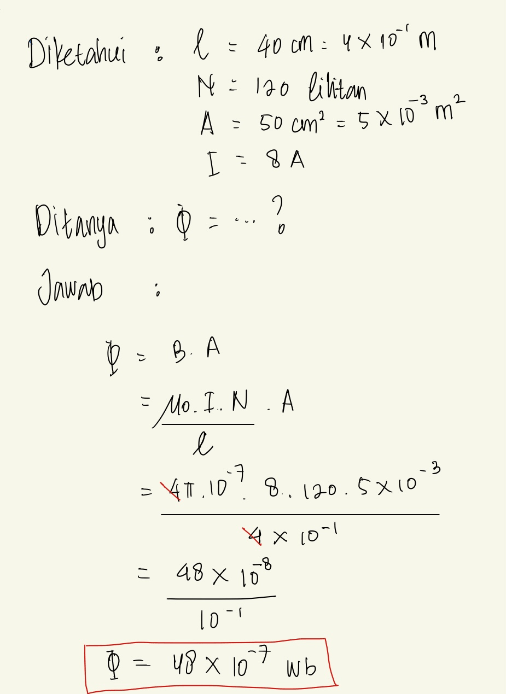 Diketahui : l = 40 cm = 4 × 10⁻¹ m
N = 120 lilitan
A = 50 cm² = 5 × 10⁻³ m²
I = 8 A
Ditanya : Φ = ... ?
Jawab :
Φ = B . A
= μo . I . N / l . A
= 4π . 10⁻⁷ . 8 . 120 . 5 × 10⁻³ / 4 × 10⁻¹
= 48 × 10⁻⁸ / 10⁻¹
Φ = 48 × 10⁻⁷ wb